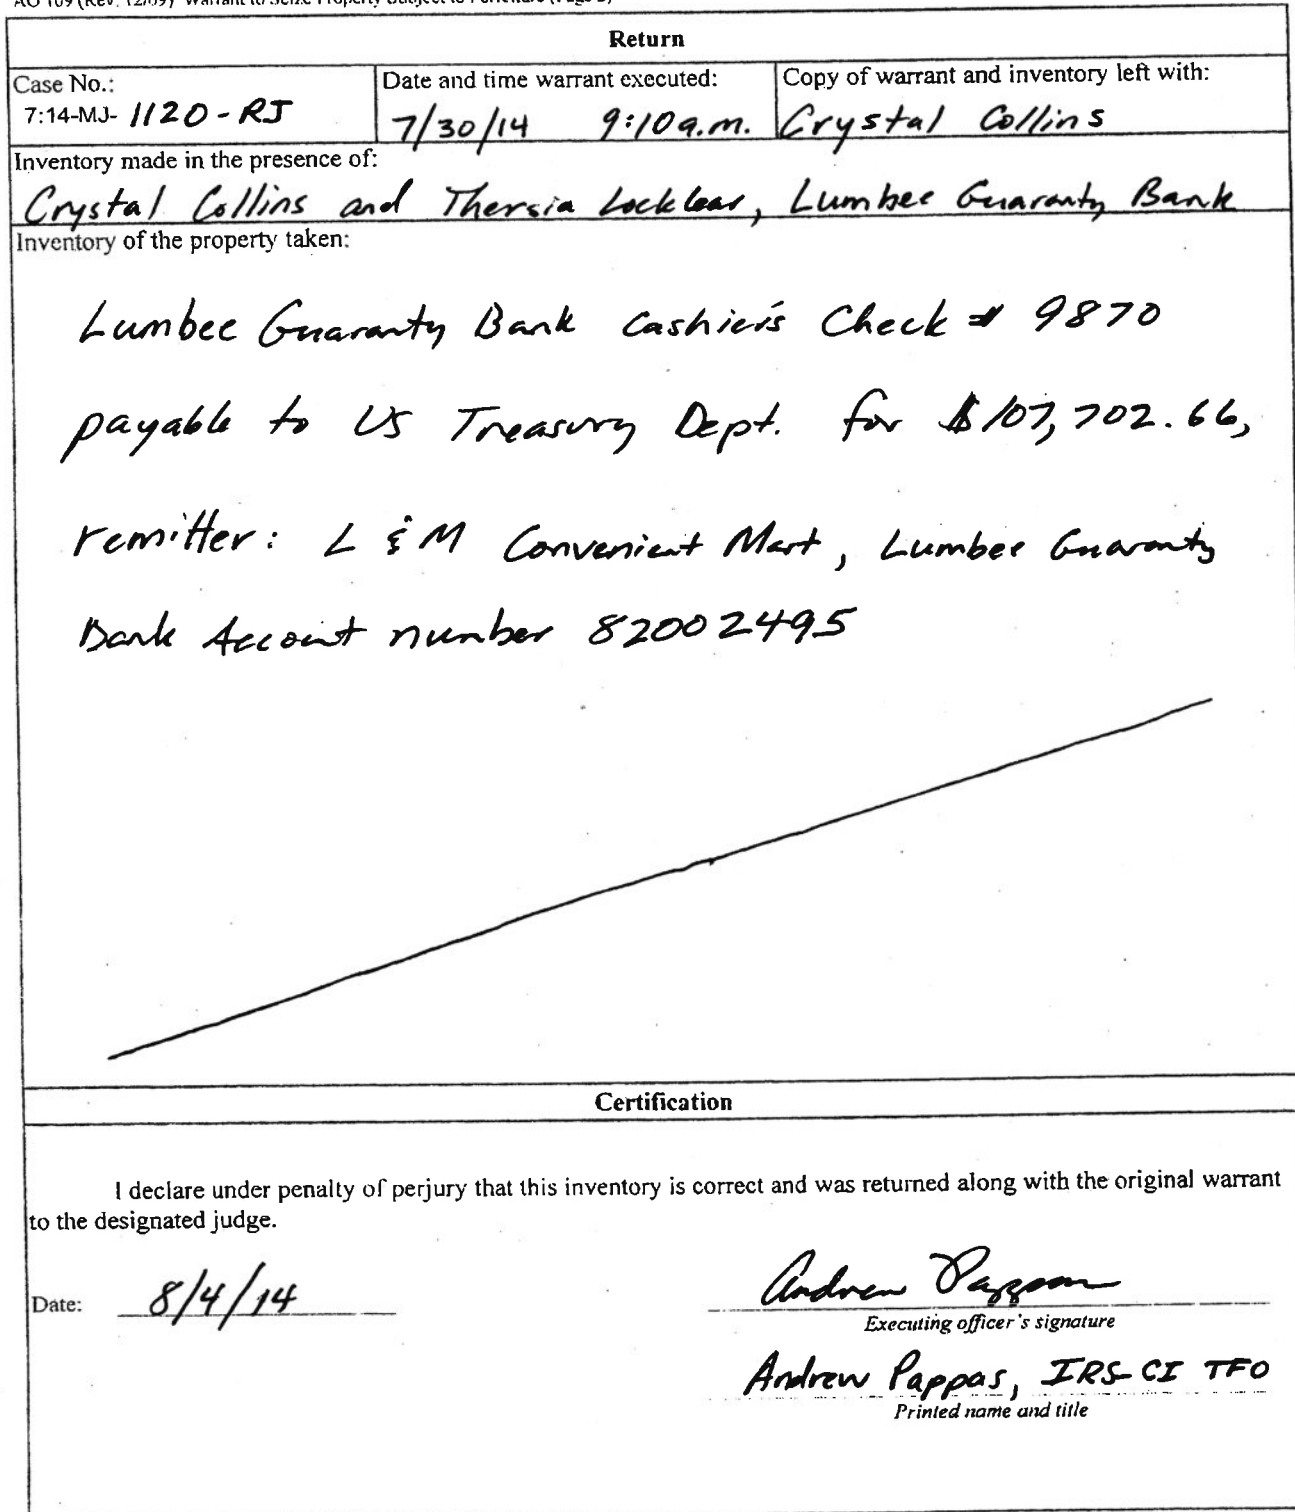 AO 109 (Rev. 12/09) Warrant to Seize Property Subject to Forfeiture (Page 2)
Return
Case No.:
7:14-MJ- 1120-RJ
Date and time warrant executed:
7/30/14 9:10 a.m.
Copy of warrant and inventory left with:
Crystal Collins
Inventory made in the presence of:
Crystal Collins and Thersia Locklear, Lumbee Guaranty Bank
Inventory of the property taken:
Lumbee Guaranty Bank Cashier's Check # 9870
payable to US Treasury Dept. for $107,702.66,
remitter: L & M Convenient Mart, Lumbee Guaranty
Bank Account number 82002495
Certification
I declare under penalty of perjury that this inventory is correct and was returned along with the original warrant
to the designated judge.
Date: 8/4/14
Andrew Pappas
Executing officer's signature
Andrew Pappas, IRS-CI TFO
Printed name and title